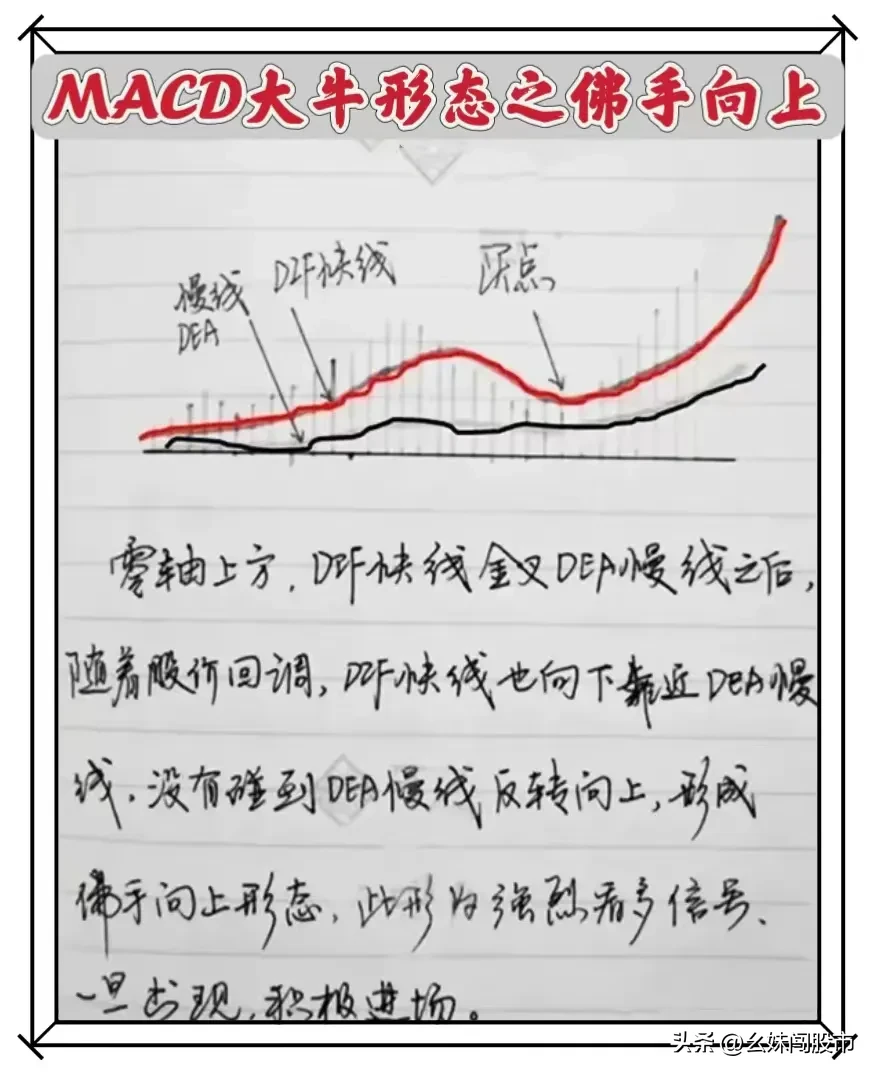 MACD大牛形态之佛手向上
慢线
DEA
DIF快线
买点
零轴上方,DIF快线金叉DEA慢线之后,
随着股价回调,DIF快线也向下靠近DEA慢
线,没有碰到DEA慢线反转向上,形成
佛手向上形态,此形为强烈看多信号、
一旦出现,积极进场。
头条 @幺妹闯股市